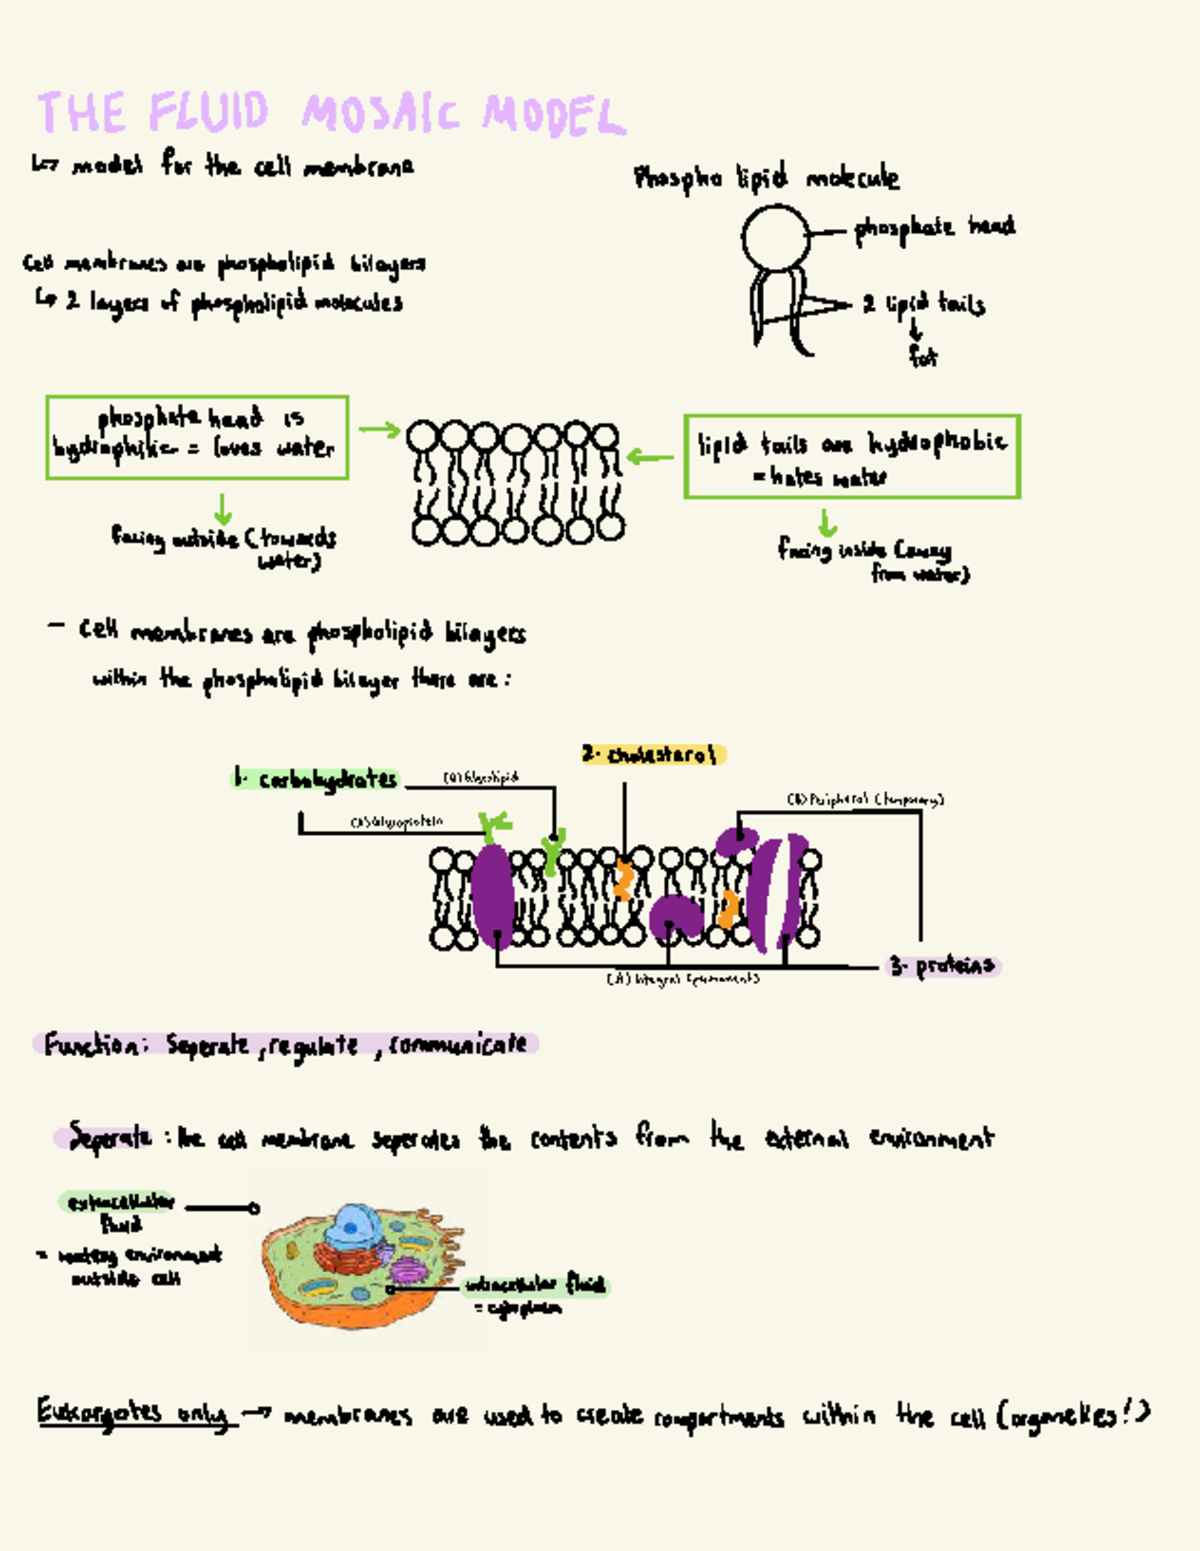 THE FLUID MOSAIC MODEL
↳ model for the cell membrane
Phospho lipid molecule
phosphate head
cell membranes are phospholipid bilayers
↳ 2 layers of phospholipid molecules
2 lipid tails
↓
fat
phosphate head is
hydrophilic = loves water
lipid tails are hydrophobic
= hates water
facing outside (towards
water)
facing inside (away
from water)
- cell membranes are phospholipid bilayers
within the phospholipid bilayer there are:
2. cholesterol
1. carbohydrates
(a) Glycolipid
(b) Glycoprotein
(B) Peripheral (temporary)
3. proteins
(A) Integral (permanent)
Function: Seperate, regulate, communicate
Seperate: the cell membrane seperates the contents from the external environment
extracellular
fluid
= watery environment
outside cell
intracellular fluid
= cytoplasm
Eukaryotes only → membranes are used to create compartments within the cell (organelles!)